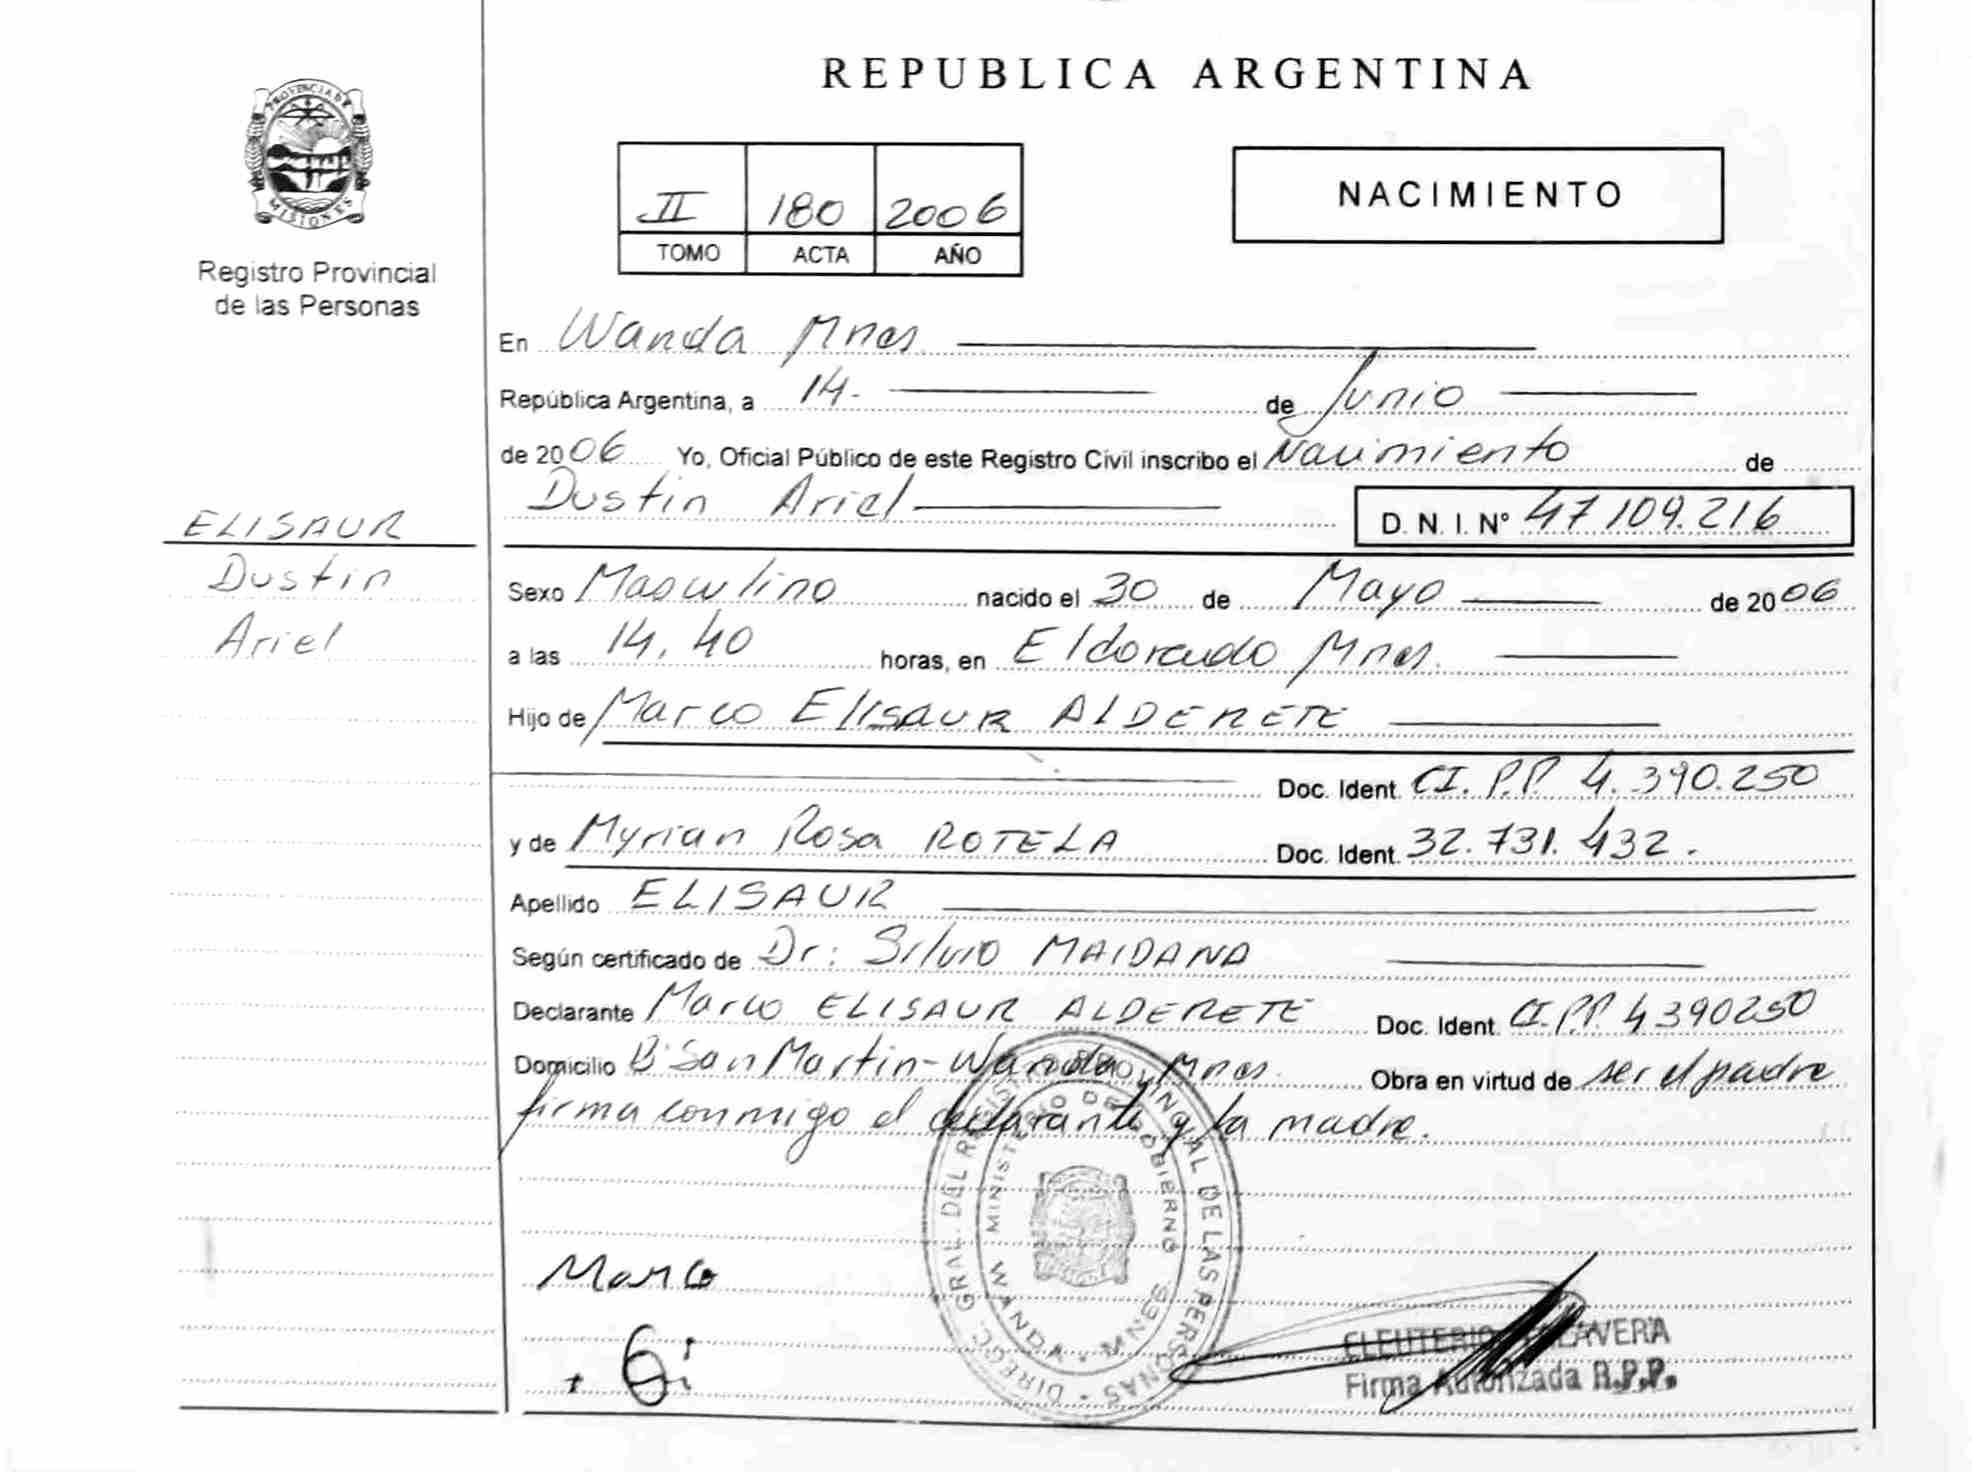 REPUBLICA ARGENTINA
PROVINCIA DE
MISIONES
Registro Provincial
de las Personas
II 180 2006
TOMO ACTA AÑO
NACIMIENTO
En Wanda Mnes.
República Argentina, a 14. de Junio
de 2006 Yo, Oficial Público de este Registro Civil inscribo el Nacimiento de
Dustin Ariel D. N. I. Nº 47109.216
ELISAUR
Dustin
Ariel
Sexo Masculino nacido el 30 de Mayo de 2006
a las 14,40 horas, en Eldorado Mnes.
Hijo de Marco Elisaur ALDERETE
Doc. Ident. CI. P.P. 4.390.250
y de Myrian Rosa ROTELA Doc. Ident. 32.731.432.
Apellido ELISAUR
Según certificado de Dr: Silvio MAIDANA
Declarante Marco ELISAUR ALDERETE Doc. Ident. CI. P.P. 4390250
Domicilio Bº San Martin - Wanda Mnes. Obra en virtud de ser el padre
firma conmigo el declarante y la madre.
DIRECC. GRAL. DEL REGISTRO PROVINCIAL DE LAS PERSONAS
MINISTERIO DE GOBIERNO
WANDA - MNES
Marco
ELEUTERIO TALAVERA
Firma Autorizada R.P.P.